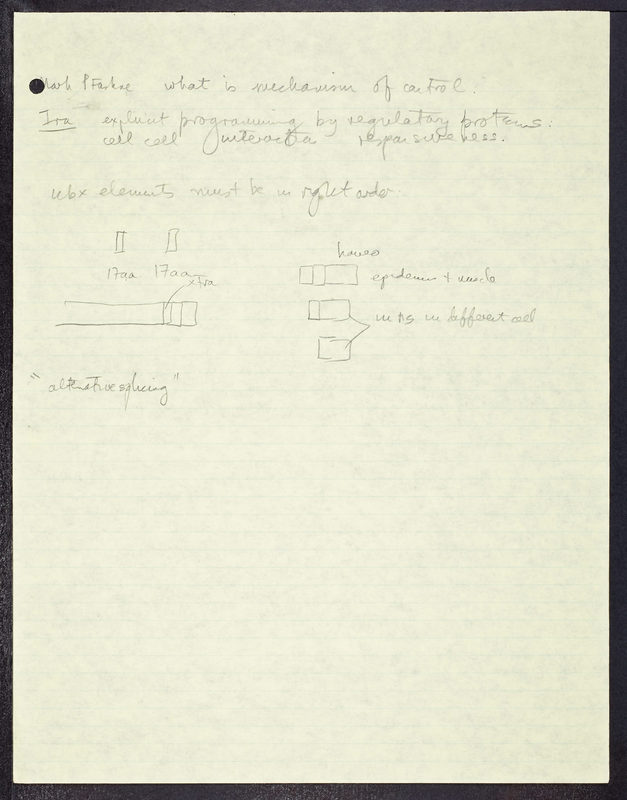 Mark Ptashne what is mechanism of control.
Ira explicit programming by regulatory proteins.
cell cell interaction responsiveness.
Ubx elements must be in right order.
17aa 17aa
xtra
epidermis + muscle
in NS in different cell
"alternative splicing"